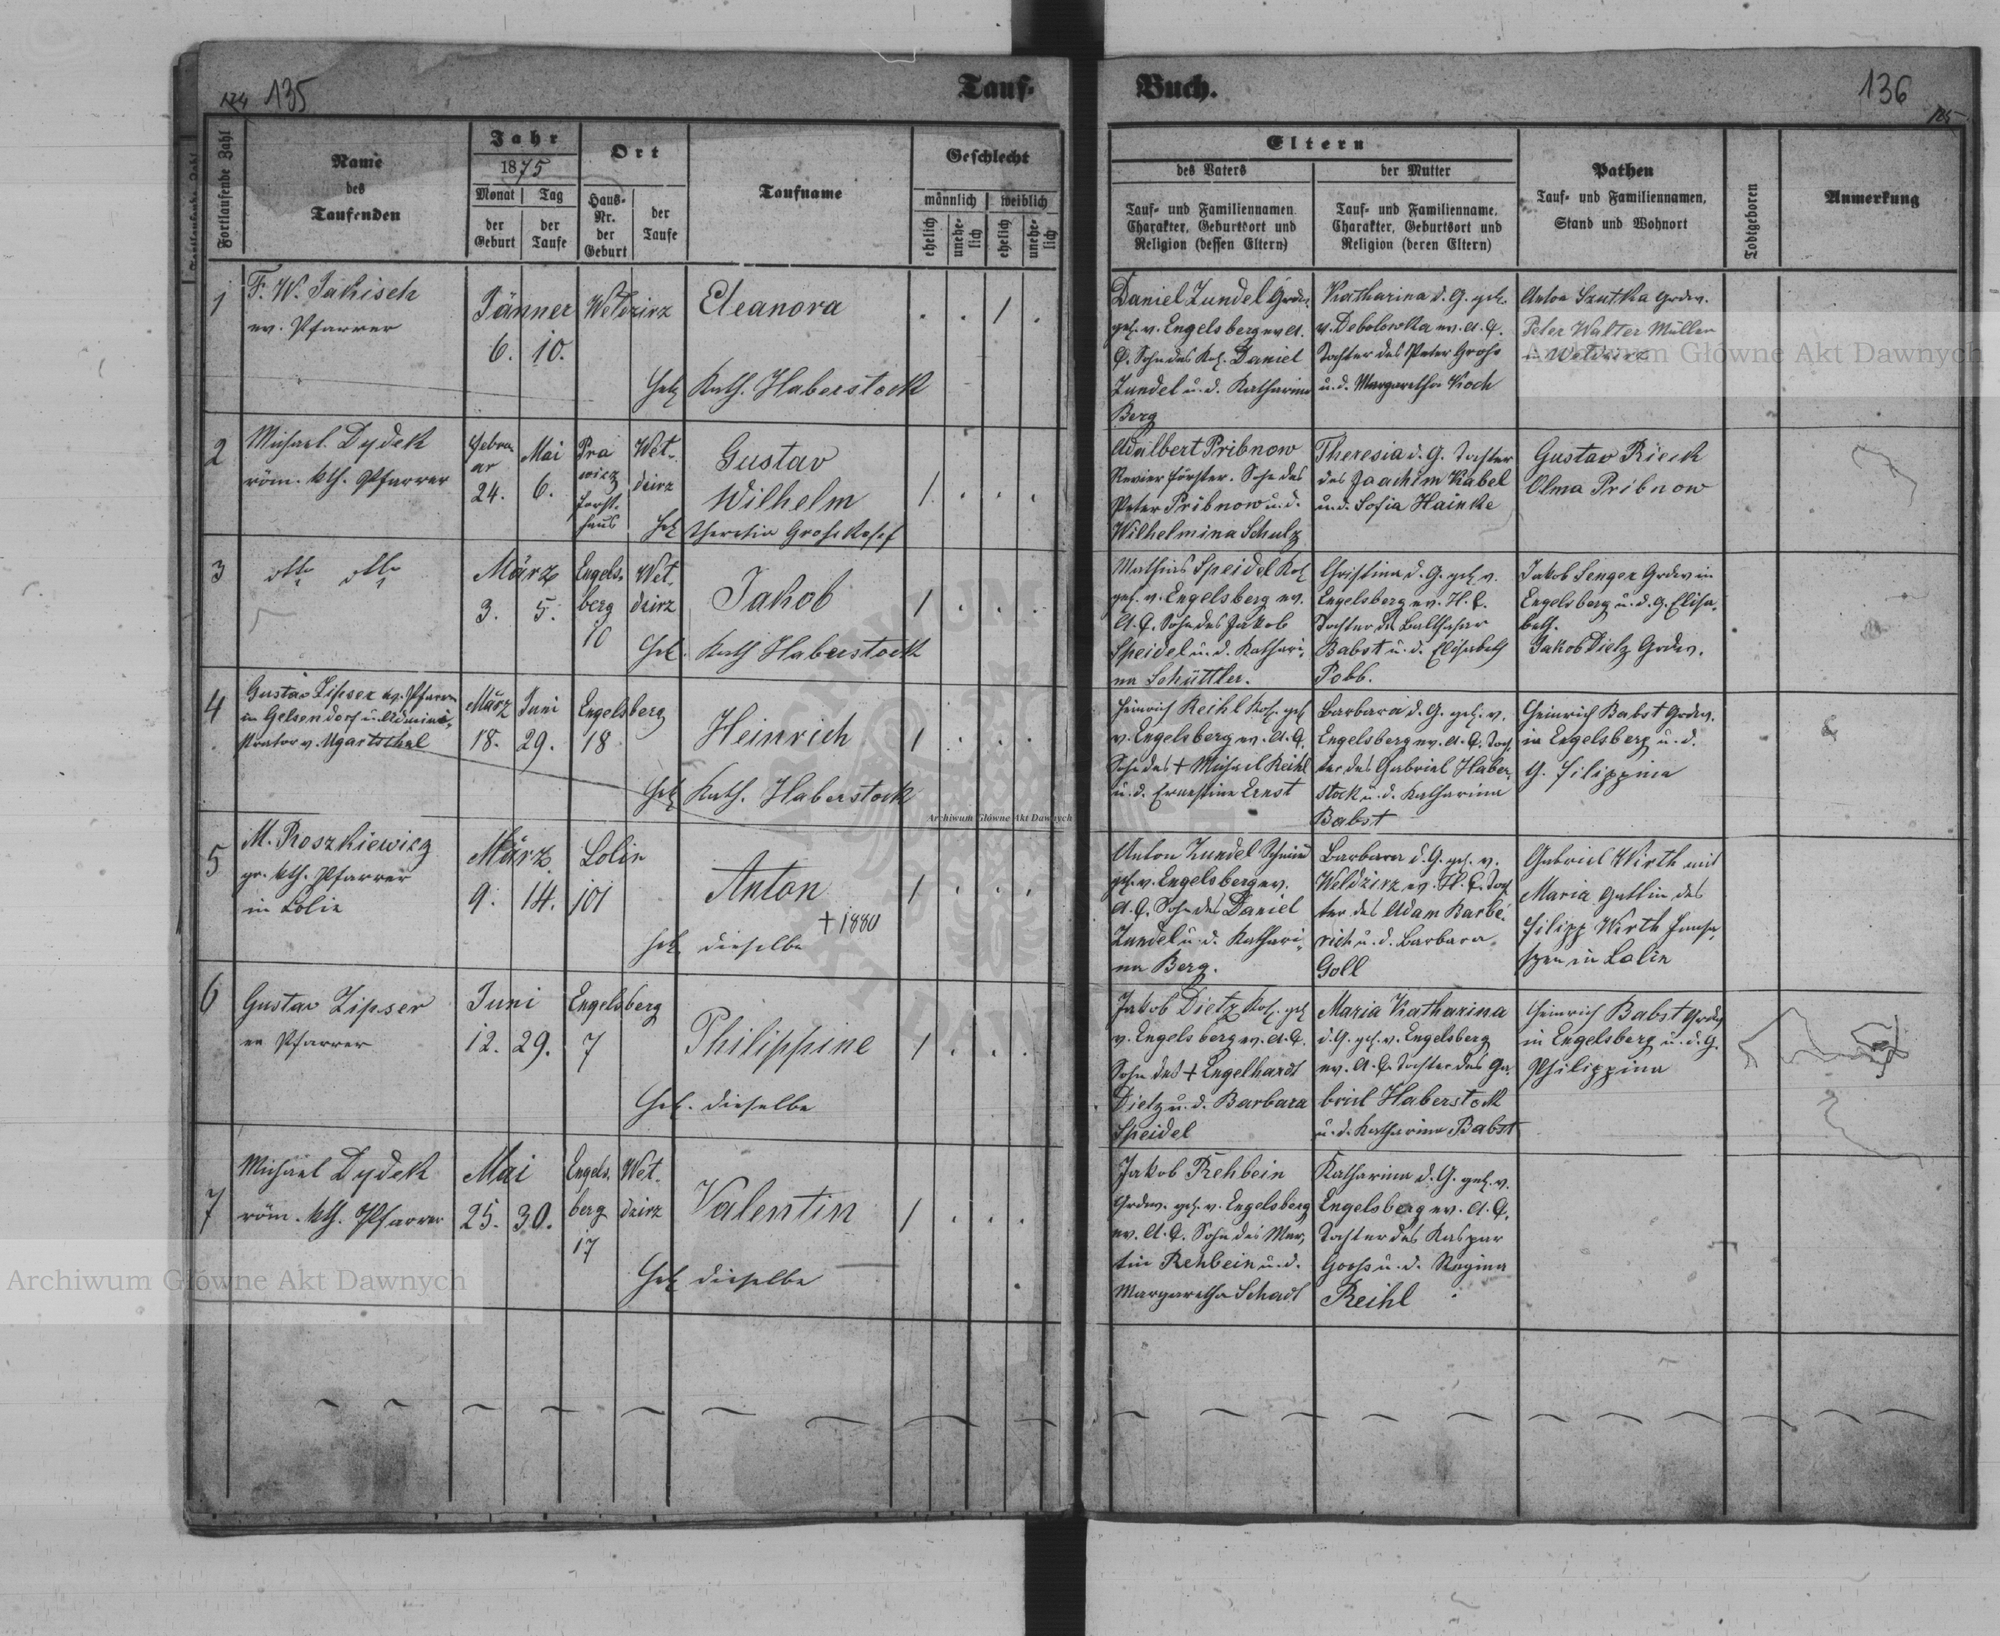 124 135
Tauf-
Fortlaufende Zahl
Name
des
Taufenden
Jahr
1875
Monat Tag
der Geburt
der Taufe
Ort
Haus-Nr. der Geburt
der Taufe
Taufname
Geschlecht
männlich weiblich
ehelich unehelich ehelich unehelich
1
F. W. Jakisch
ev. Pfarrer
Jänner
6. 10.
Weldzirz
Eleanora
. . 1 .
Heb. Kath. Haberstock
2
Michael Dydek
röm. kth. Pfarrer
Februar
24.
Mai
6.
Forsthaus
Wel-
dzirz
Gustav
Wilhelm
1 . . .
Heb. Theresia
3
dtto dtto
März
3. 5.
Engels-
berg
10
Wel-
dzirz
Jakob
1 . . .
Heb. Kath Haberstock
4
Gustav Zipser ev. Pfarrer
in Gelsendorf u. Admini-
strator v. Ugartsthal
März Juni
18. 29.
Engelsberg
18
Heinrich
1 . . .
Heb. Kath. Haberstock
5
M. Roszkiewicz
gr. kth. Pfarrer
in Lolin
März
9. 14.
Lolin
101
Anton
+ 1880
1 . . .
Heb. dieselbe
6
Gustav Zipser
ev Pfarrer
Juni
12. 29.
Engelsberg
7
Philippine
1 . . .
Heb. dieselbe
7
Michael Dydek
röm. kth. Pfarrer
Mai
25. 30.
Engels-
berg
17
Wel-
dzirz
Valentin
1 . . .
Heb. dieselbe
Buch.
136
125
Eltern
des Vaters
Tauf- und Familiennamen
Charakter, Geburtsort und
Religion (dessen Eltern)
der Mutter
Tauf- und Familienname,
Charakter, Geburtsort und
Religion (deren Eltern)
Pathen
Tauf- und Familiennamen,
Stand und Wohnort
Todtgeboren
Anmerkung
Daniel Zundel Grdw.
geb. v. Engelsberg ev. A.
C. Sohn des Kol. Daniel
Zundel u. d. Katharina
Berg
Katharina d. G. geb.
v. Debolowka ev. A. C.
Tochter des Peter Gross
u. d. Margaretha Koch
Anton Szutka Grdw.
Peter Walter Müller
in Weldzirz
Adalbert Pribnow
Revier Förster. Sohn des
Peter Pribnow u. d.
Wilhelmina Schulz
Theresia d. G. Tochter
des Joachim Kabel
u. d. Sofia Hainke
Gustav Rieck
Olma Pribnow
Mathias Speidel Kol
geb. v. Engelsberg ev.
A. C. Sohn des Jakob
Speidel u. d. Kathari-
na Schüttler.
Christina d. G. geb. v.
Engelsberg ev. H. C.
Tochter des Balthasar
Babst u. d. Elisabeth
Pobb.
Jakob Senger Grdw in
Engelsberg u. d. G. Elisa-
beth.
Jakob Dietz Grdw.
Heinrich Reihl Kol. geb
v. Engelsberg ev. A. C.
Sohn des + Michael Reihl
u. d. Ernestine Ernst
Barbara d. G. geb. v.
Engelsberg ev. A. C. Toch-
ter des Gabriel Haber-
stock u. d. Katharina
Babst
Heinrich Babst Grdw.
in Engelsberg u. d.
G. Filippina
Anton Zundel Schmied
geb. v. Engelsberg ev.
A. C. Sohn des Daniel
Zundel u. d. Kathari-
na Berg.
Barbara d. G. geb. v.
Weldzirz ev. H. C. Toch
ter des Adam Karbe-
rich u. d. Barbara
Goll
Gabriel Wirth mit
Maria Gattin des
Filipp Wirth Insa-
ssen in Lolin
Jakob Dietz Kol. geb
v. Engelsberg ev. A. C.
Sohn des + Engelhardt
Dietz u. d. Barbara
Speidel
Maria Katharina
d. G. geb. v. Engelsberg
ev. A. C. Tochter des Ga-
briel Haberstock
u. d. Katharina Babst
Heinrich Babst Grdw
in Engelsberg u. d. G.
Philippina
Jakob Rehbein
Grdw. geb. v. Engelsberg
ev. A. C. Sohn des Mar-
tin Rehbein u. d.
Margaretha Schadt
Katharina d. G. geb. v.
Engelsberg ev. A. C.
Tochter des Kaspar
Gooss u. d. Regina
Reihl
Archiwum Główne Akt Dawnych
Archiwum Główne Akt Dawnych
Archiwum Główne Akt Dawnych